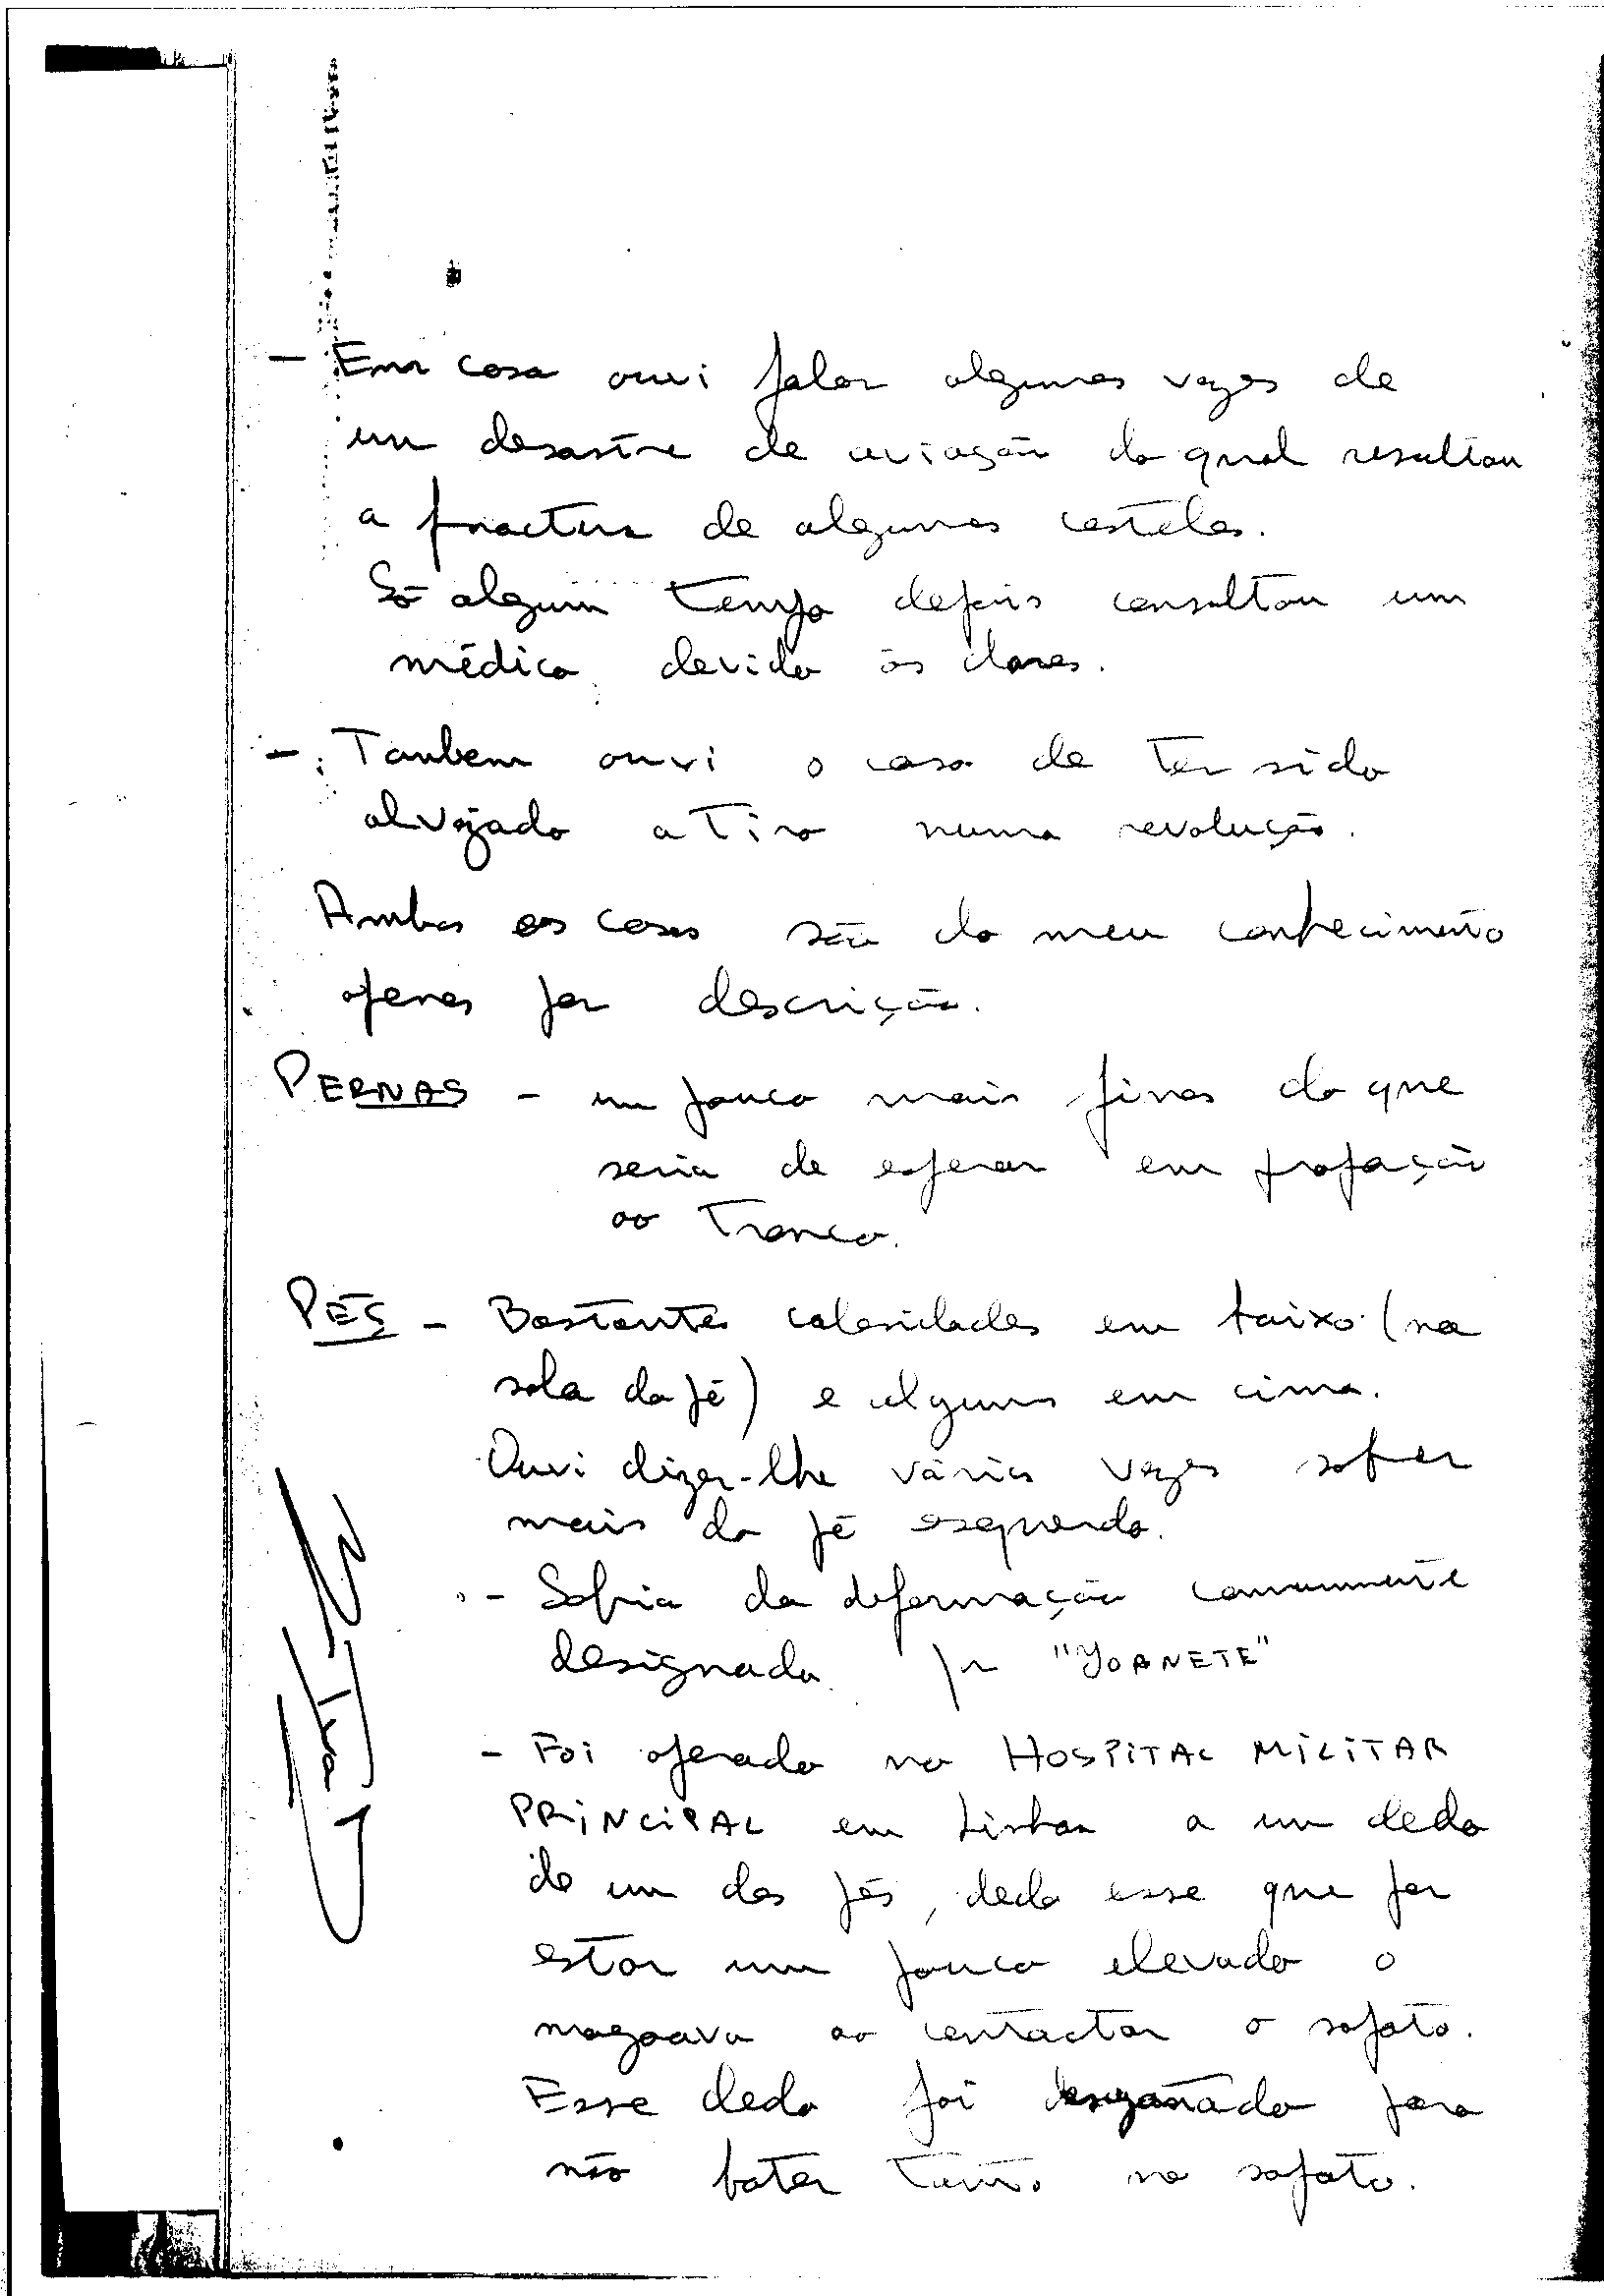 - Em casa ouvi falar algumas vezes de
um desastre de aviação do qual resultou
a fractura de algumas costelas.
Só algum tempo depois consultou um
médico devido às dores.
- Tambem ouvi o caso de ter sido
alvejado a tiro numa revolução.
Ambos os casos são do meu conhecimento
apenas por descrição.
PERNAS - um pouco mais finas do que
seria de esperar em proporção
ao tronco.
PÉS - Bastantes calosidades em baixo (na
sola do pé) e algumas em cima.
Ouvi dizer-lhe várias vezes sofrer
mais do pé esquerdo.
- Sofria da deformação comummente
designada por "JOANETE"
- Foi operado no HOSPITAL MILITAR
PRINCIPAL em Lisboa a um dedo
de um dos pés, dedo esse que por
estar um pouco elevado o
magoava ao contactar o sapato.
Esse dedo foi para
não bater tanto no sapato.